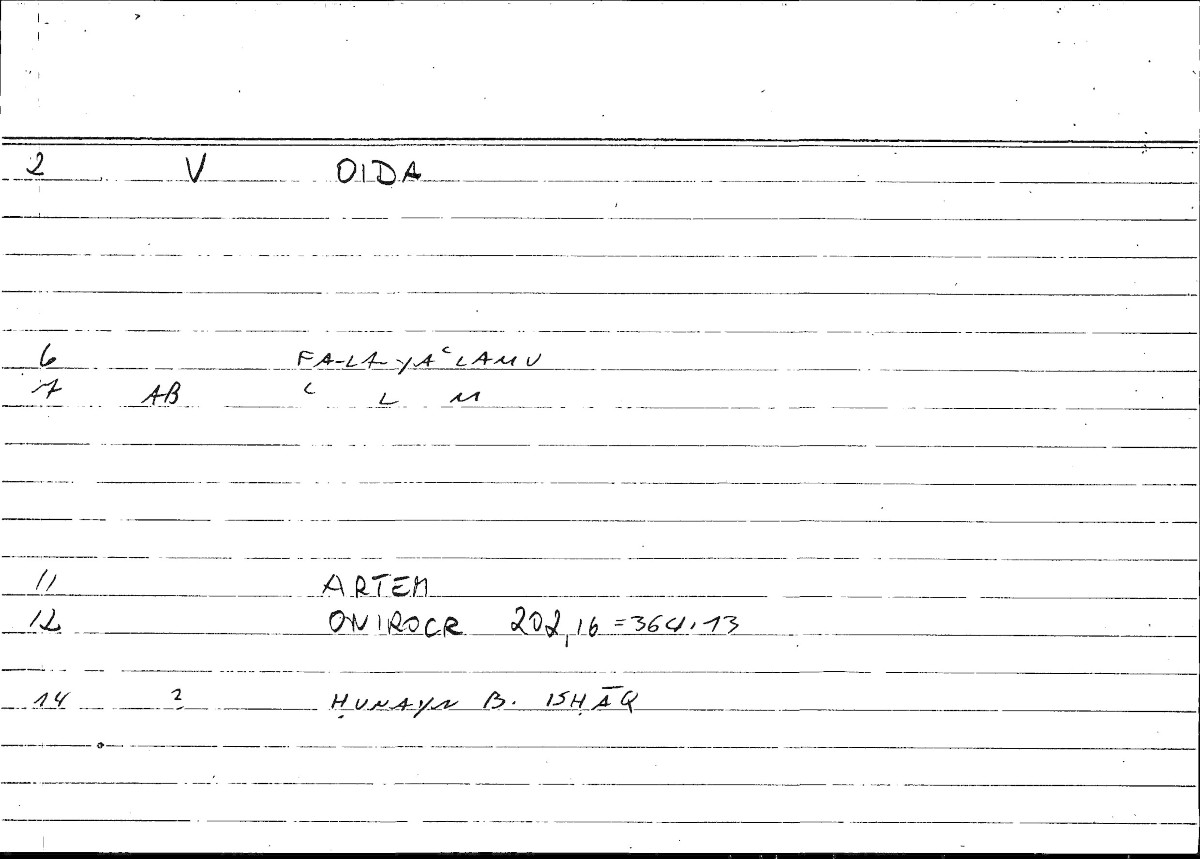 2 V OIDA
6 FA-LA-YAʿLAMU
7 AB ʿ L M
11 ARTEM
12 ONIROCR 202,16 = 364.13
14 2 ḤUNAYN B. ISḤĀQ